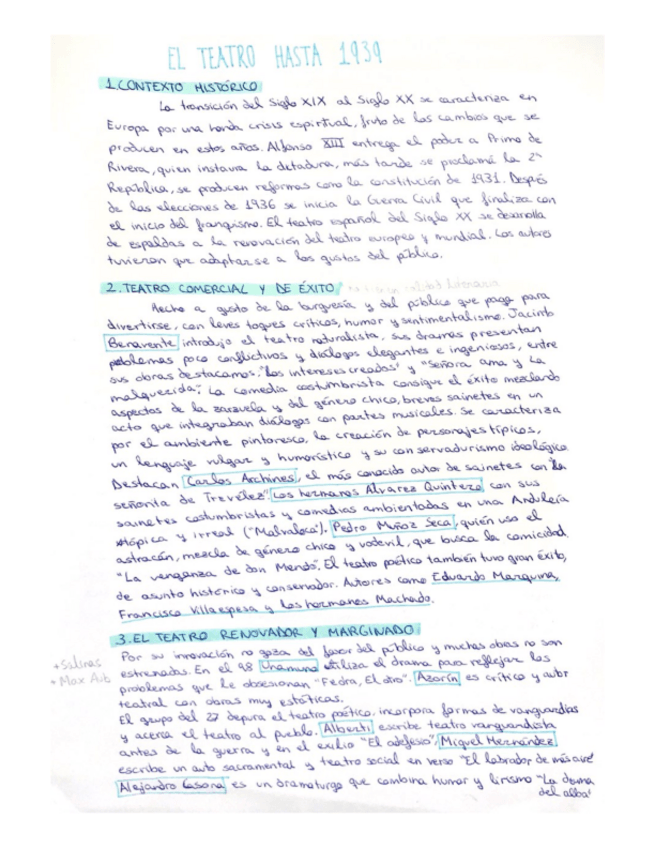 EL TEATRO HASTA 1939
1.CONTEXTO HISTÓRICO
La transición del Siglo XIX al Siglo XX se caracteriza en
Europa por una honda crisis espiritual, fruto de los cambios que se
producen en estos años. Alfonso XIII entrega el poder a Primo de
Rivera, quien instaura la dictadura, más tarde se proclama la 2ª
República, se producen reformas como la constitución de 1931. Después
de las elecciones de 1936 se inicia la Guerra Civil que finaliza con
el inicio del franquismo. El teatro español del Siglo XX se desarrolla
de espaldas a la renovación del teatro europeo y mundial. Los autores
tuvieron que adaptarse a los gustos del público.
2.TEATRO COMERCIAL Y DE ÉXITO calidad literaria
Hecho a gusto de la burguesía y del público que paga para
divertirse, con leves toques críticos, humor y sentimentalismo. Jacinto
Benavente introdujo el teatro naturalista, sus dramas presentan
problemas poco conflictivos y diálogos elegantes e ingeniosos, entre
sus obras destacamos, "Los intereses creados" y "Señora ama y La
malquerida". La comedia costumbrista consigue el éxito mezclando
aspectos de la zarzuela y del género chico, breves sainetes en un
acto que integraban diálogos con partes musicales. Se caracteriza
por el ambiente pintoresco, la creación de personajes típicos,
un lenguaje vulgar y humorístico y su conservadurismo ideológico.
Destacan Carlos Archines, el más conocido autor de sainetes con "La
señorita de Trevélez". Los hermanos Álvarez Quintero con sus
sainetes costumbristas y comedias ambientadas en una Andalucía
utópica y irreal ("Malvaloca"). Pedro Muñoz Seca, quién usa el
astracán, mezcla de género chico y vodevil, que busca la comicidad
"La venganza de don Mendo". El teatro poético también tuvo gran éxito,
de asunto histórico y conservador. Autores como Eduardo Marquina,
Francisco Villaespesa y los hermanos Machado.
3.EL TEATRO RENOVADOR Y MARGINADO
Por su innovación no goza del favor del público y muchas obras no son
estrenadas. En el 98 Unamuno utiliza el drama para reflejar los
problemas que le obsesionan "Fedra, El otro". Azorín es crítico y autor
teatral con obras muy estáticas.
+Salinas
+Max Aub
El grupo del 27 depura el teatro poético, incorpora formas de vanguardias
y acerca el teatro al pueblo. Alberti escribe teatro vanguardista
antes de la guerra y en el exilio "El adefesio". Miguel Hernández
escribe un auto sacramental y teatro social en verso "El labrador de más aire"
Alejandro Casona es un dramaturgo que combina humor y lirismo "La dama
del alba"